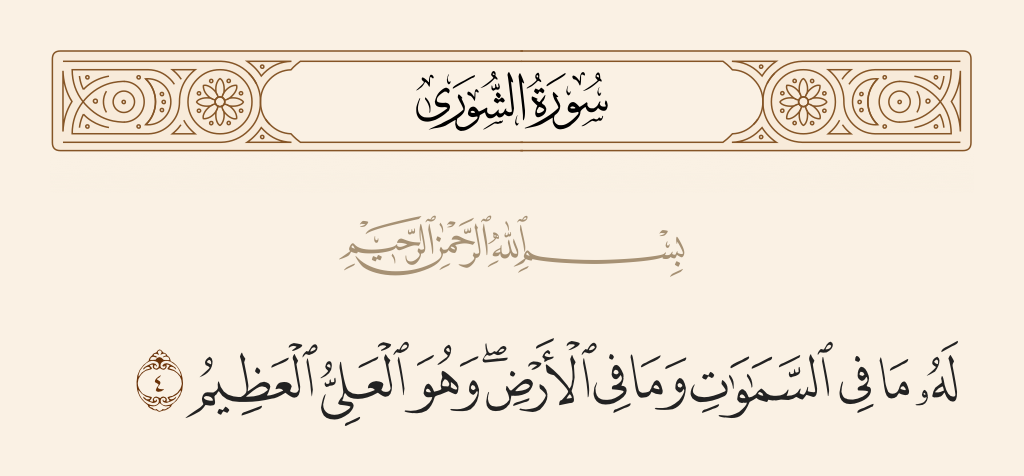 سُورَةُ الشُّورَىٰ
بِسْمِ ٱللَّهِ ٱلرَّحْمَٰنِ ٱلرَّحِيمِ
لَهُۥ مَا فِى ٱلسَّمَٰوَٰتِ وَمَا فِى ٱلْأَرْضِ ۖ وَهُوَ ٱلْعَلِىُّ ٱلْعَظِيمُ ٤